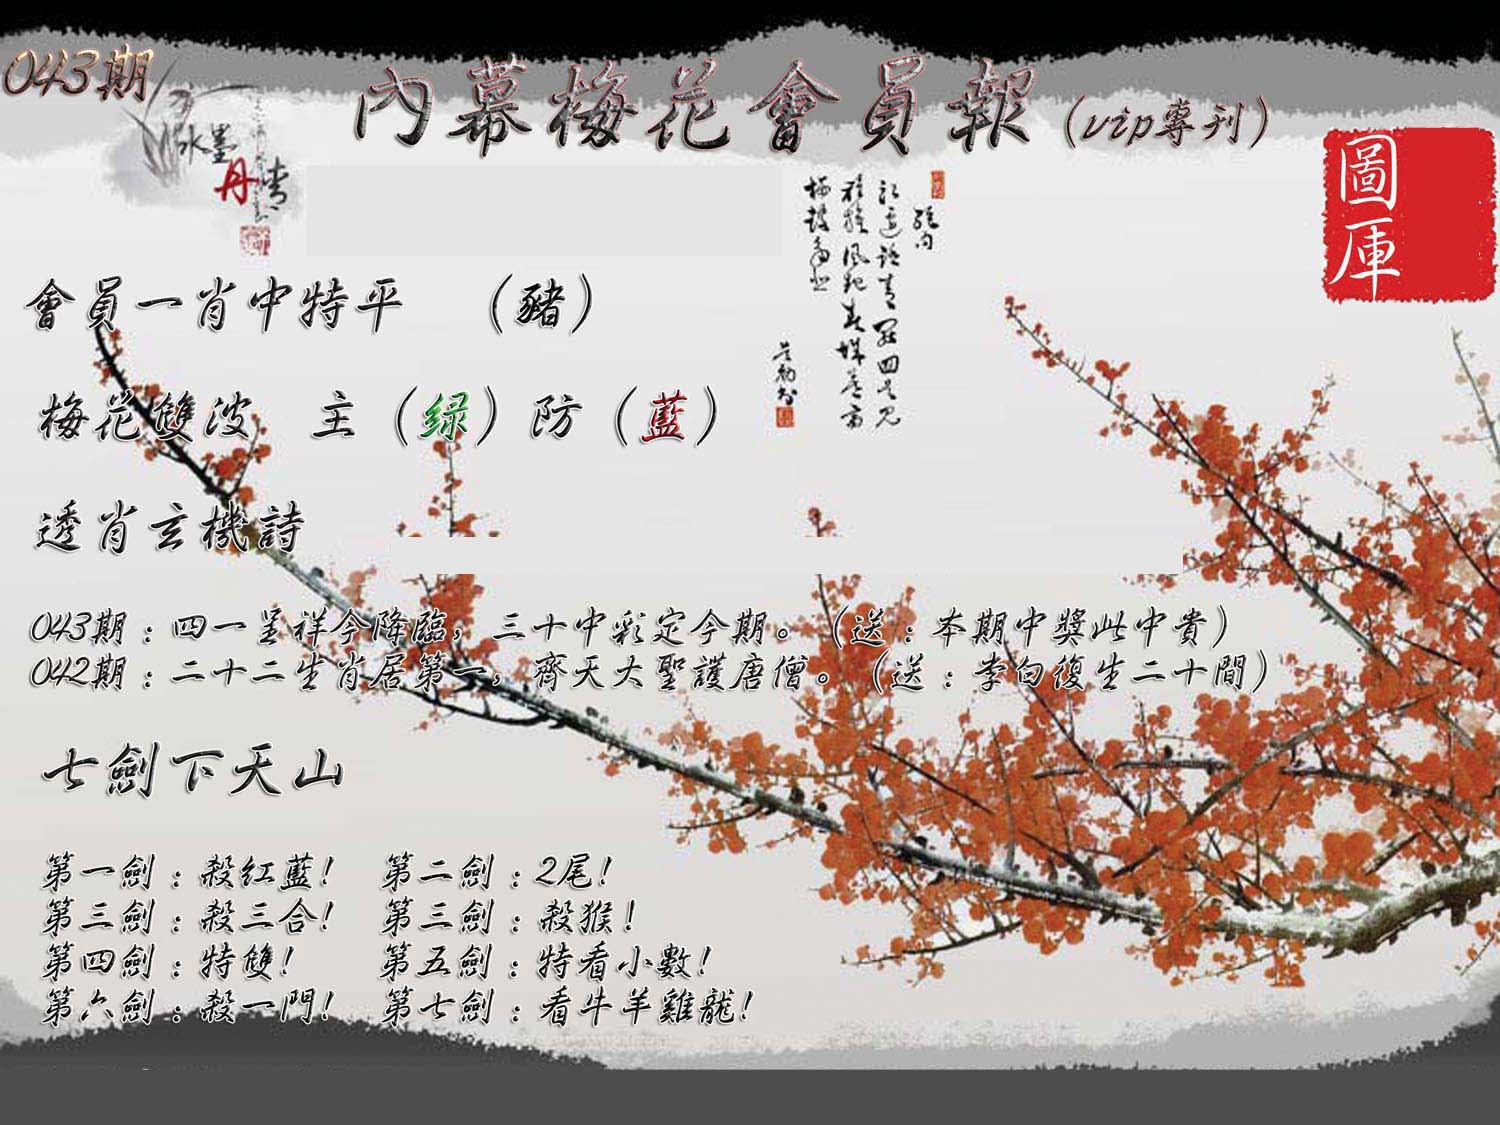 043期
內幕梅花會員報（vip專刊）
水墨
丹青
圖庫
會員一肖中特平　（豬）
梅花雙波　主（绿）防（藍）
透肖玄機詩
043期：四一呈祥今降臨，三十中彩定今期。（送：本期中獎此中貴）
042期：二十二生肖居第一，齊天大聖護唐僧。（送：李白復生二十間）
七劍下天山
第一劍：殺紅藍！　第二劍：2尾！
第三劍：殺三合！　第三劍：殺猴！
第四劍：特雙！　第五劍：特看小數！
第六劍：殺一門！　第七劍：看牛羊雞龍！